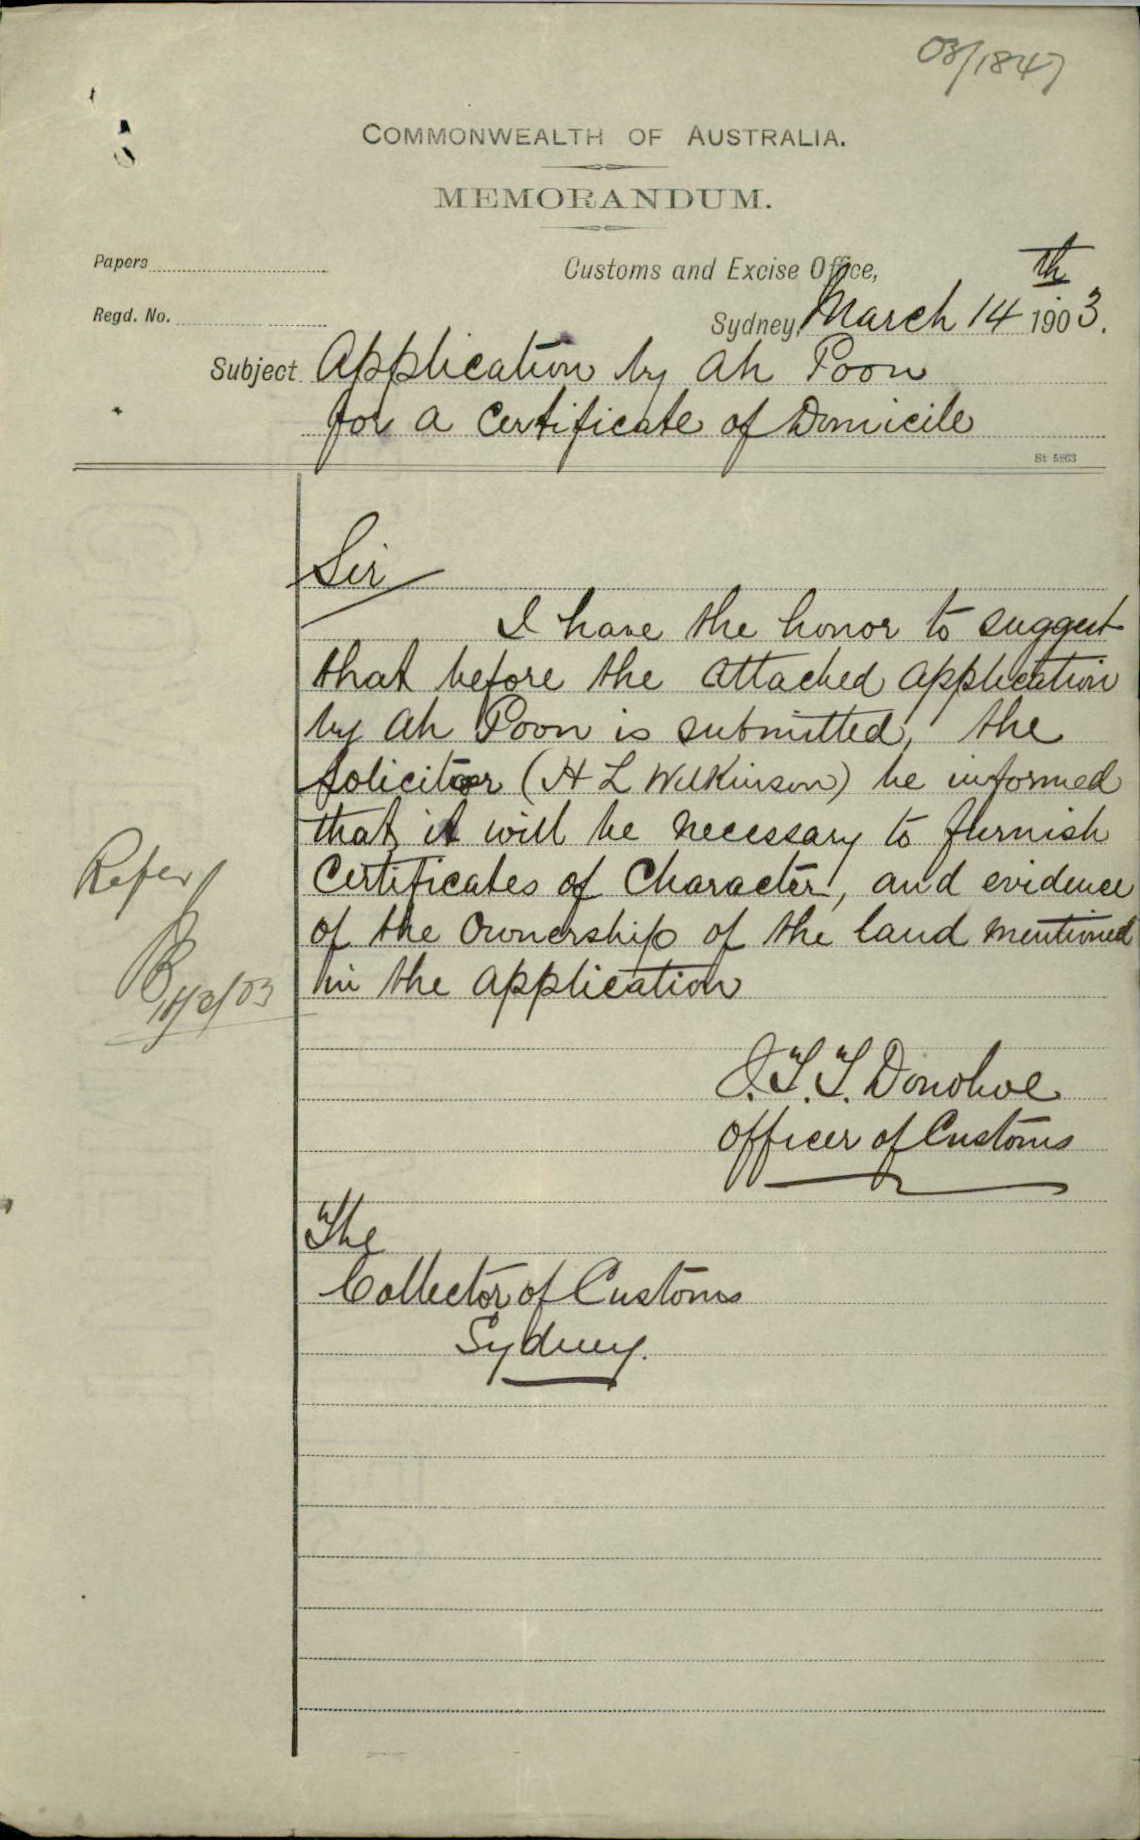 03/1847
COMMONWEALTH OF AUSTRALIA.
MEMORANDUM.
Papers
Customs and Excise Office,
Regd. No.
Sydney, March 14th 1903.
Subject Application by Ah Poon
for a Certificate of Domicile
St 5863
Sir
I have the honor to suggest
that before the attached application
by Ah Poon is submitted, the
Solicitor (H L Wilkinson) be informed
that it will be necessary to furnish
Certificates of Character, and evidence
of the Ownership of the land mentioned
in the application
Refer
/3/03
J.T.T. Donohoe
Officer of Customs
The
Collector of Customs
Sydney.